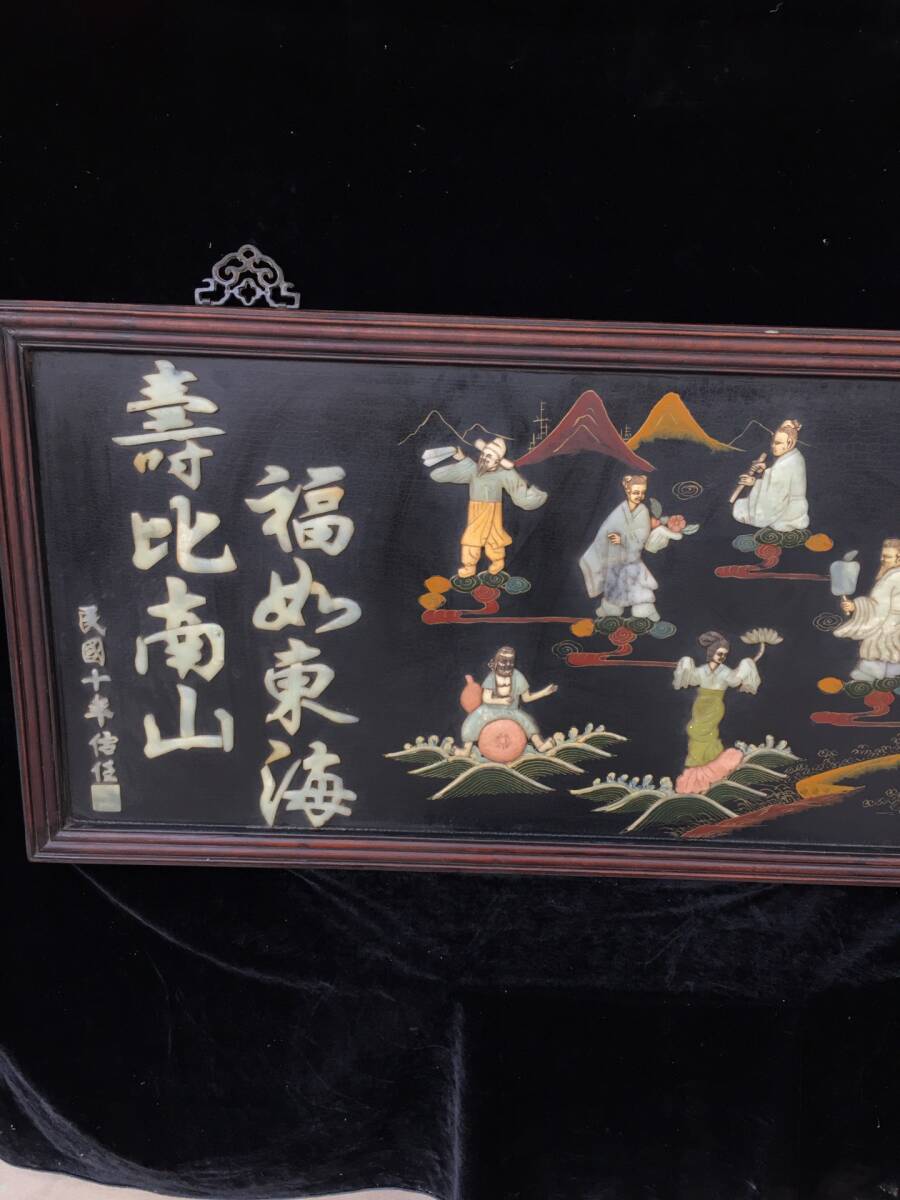 福如東海
壽比南山
民國十年